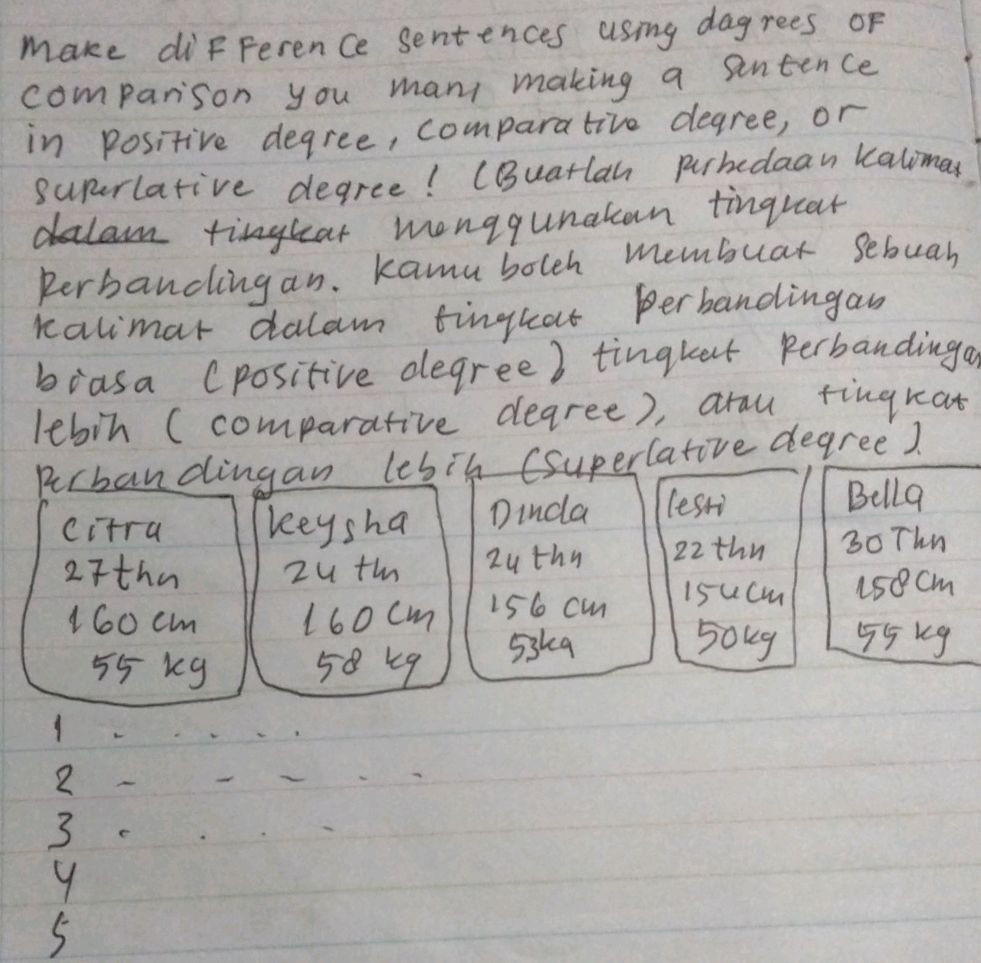 Make difference sentences using dagrees of
comparison you many making a sentence
in positive degree, comparative degree, or
superlative degree! (Buatlah perbedaan kalimat
dalam tingkat menggunakan tingkat
perbandingan. Kamu boleh membuat sebuah
kalimat dalam tingkat perbandingan
biasa (positive degree) tingkat perbandingan
lebih (comparative degree), atau tingkat
perbandingan lebih (superlative degree)
Citra
27 thn
160 cm
55 kg
Keysha
24 thn
160 cm
58 kg
Dinda
24 thn
156 cm
53 kg
lesti
22 thn
154 cm
50 kg
Bella
30 Thn
158 cm
55 kg
1 . . . . .
2 - - - . .
3 . . . -
4
5